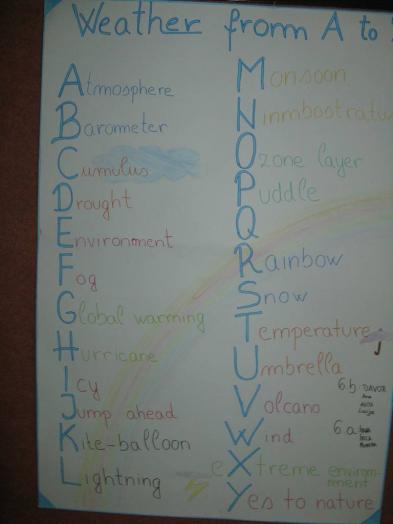 Weather from A to
Atmosphere
Barometer
Cumulus
Drought
Environment
Fog
Global warming
Hurricane
Icy
Jump ahead
Kite-balloon
Lightning
Monsoon
Ninmbostratu
Ozone layer
Puddle
Q
Rainbow
Snow
Temperature
Umbrella
Volcano
Wind
eXtreme environ-
nment
Yes to nature
6.b DAVOR
6.a